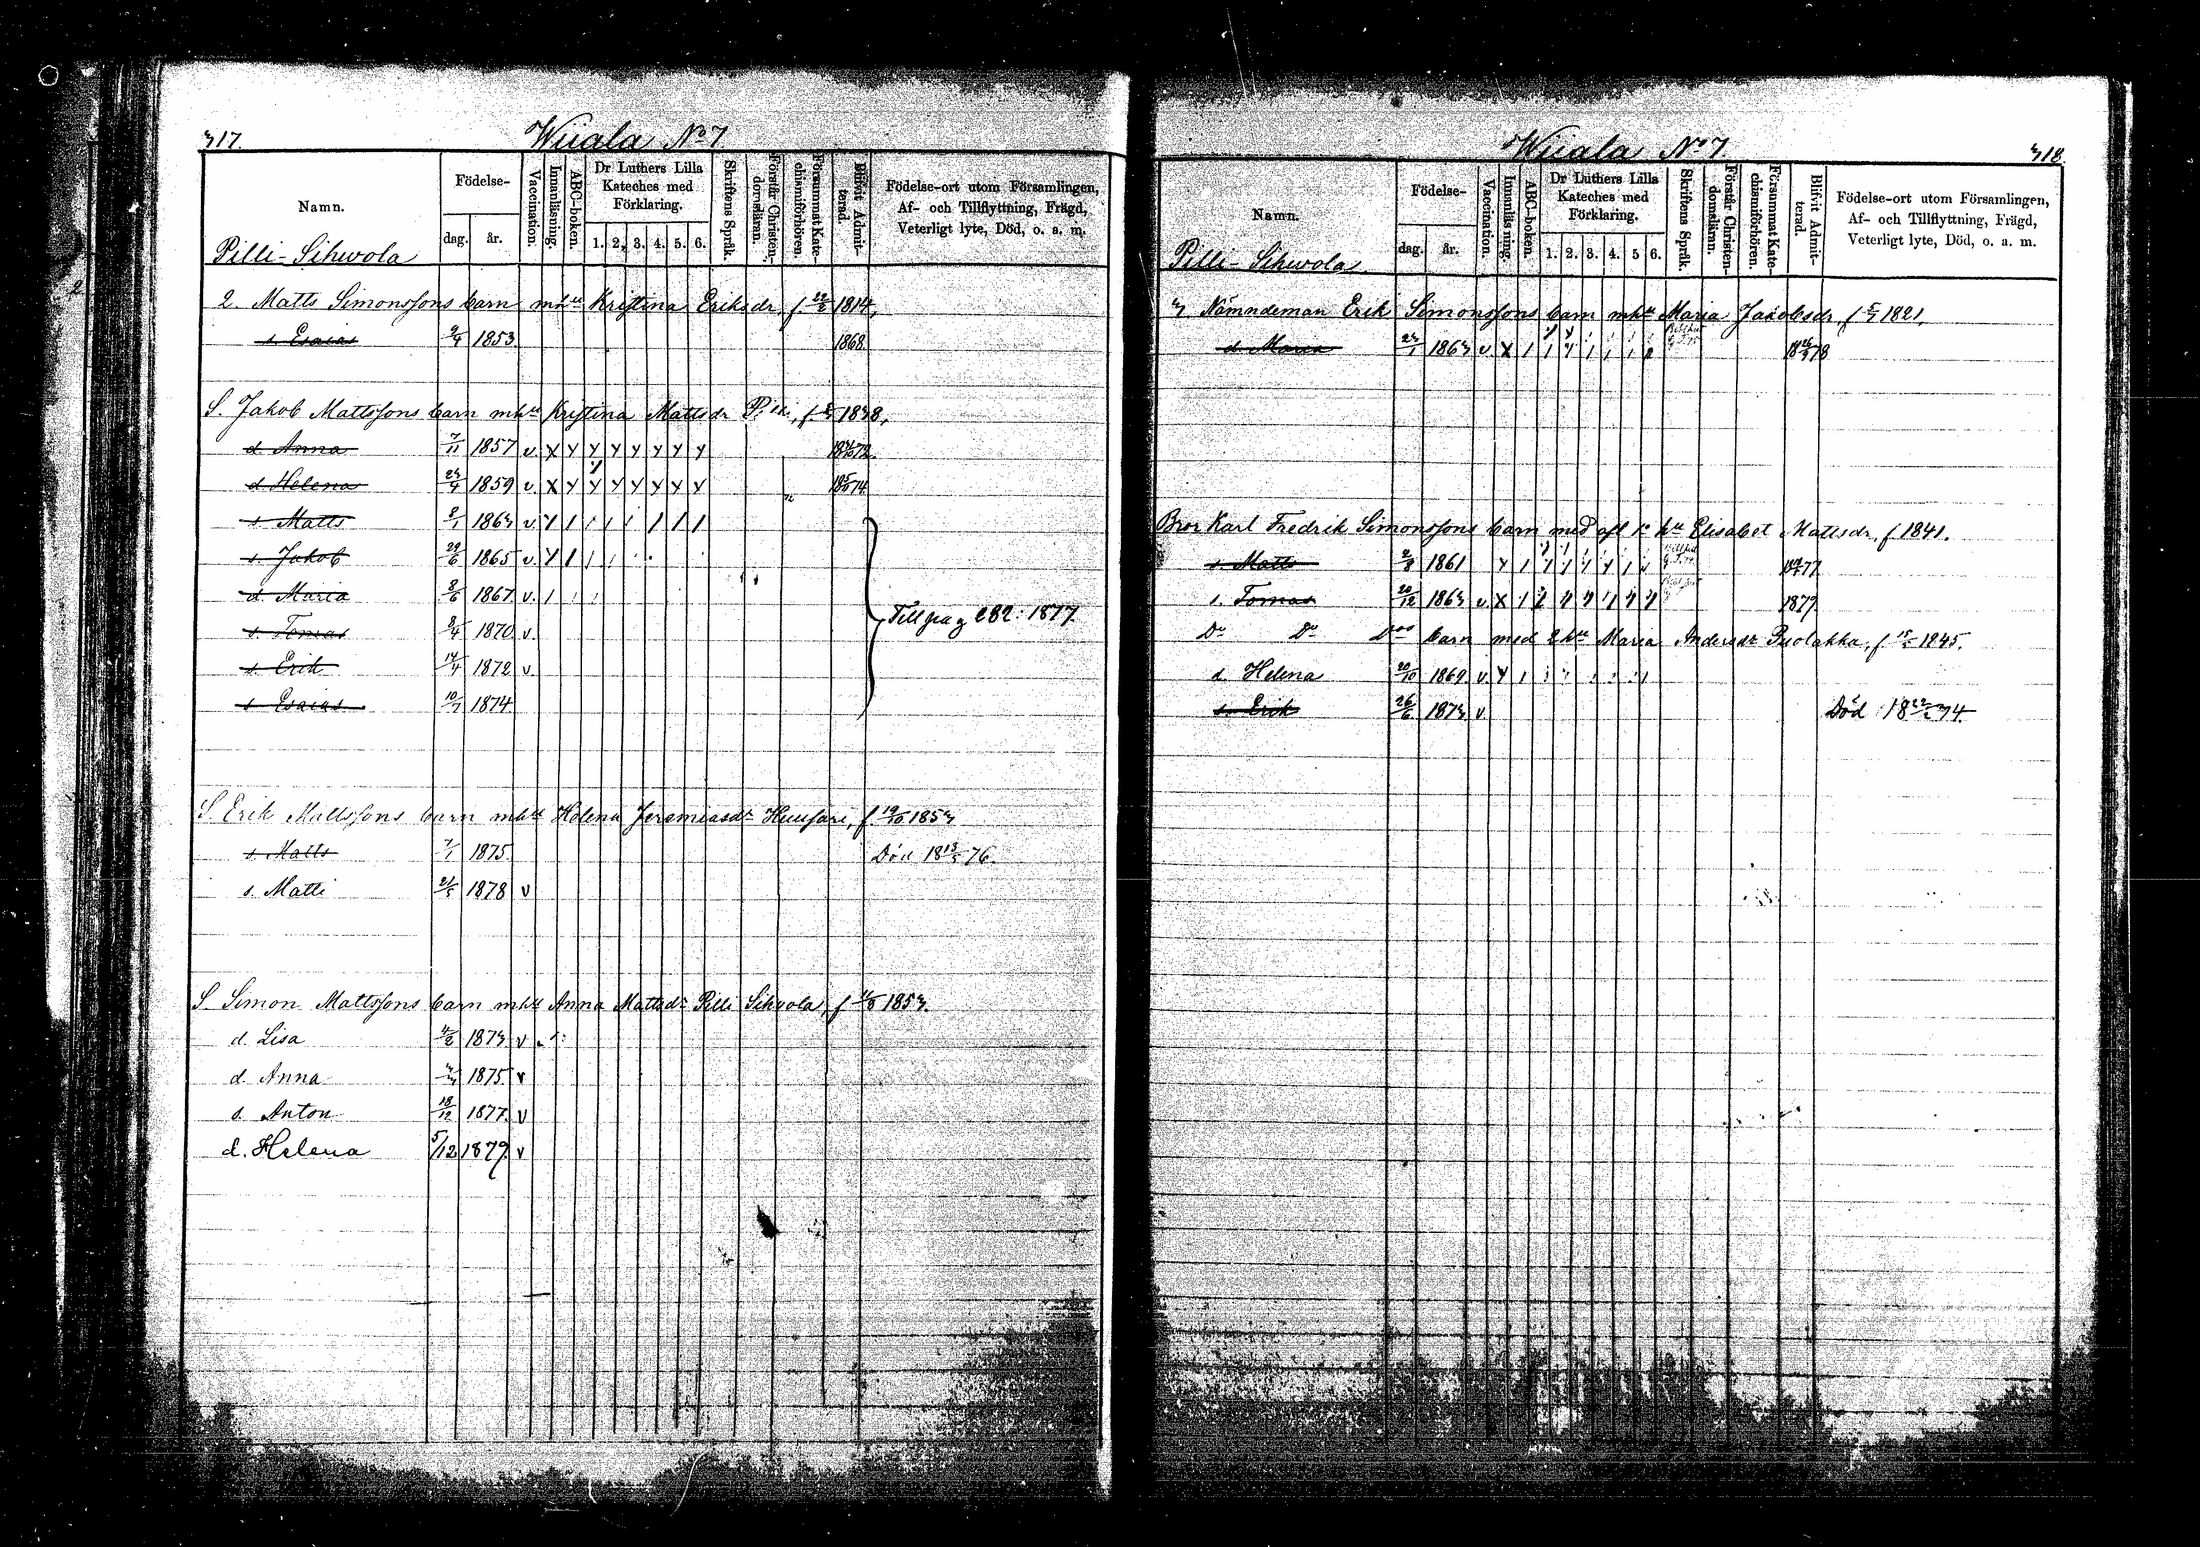 317.
Wiiala No 7
Namn.
Födelse-
dag. år.
Vaccination.
Innanläsning.
ABC-boken.
Dr Luthers Lilla Kateches med Förklaring.
1. 2. 3. 4. 5. 6.
Skriftens Språk.
Förstår Christendomsläran.
Försammat Katechismiförhören.
Blifvit Admitterad.
Födelse-ort utom Församlingen,
Af- och Tillflyttning, Frägd,
Veterligt lyte, Död, o. a. m.
Pilli-Sihvola
2. Matts Simonssons barn mhu Kristina Eriksdr, f. 1814,
s. Esaias 9/4 1853 1868
S. Jakob Mattssons barn mhu Kristina Mattsdr f. 1838,
d. Anna 7/11 1857 v. X Y Y Y Y Y Y Y
d. Helena 23/4 1859 v. X Y Y Y Y Y Y Y
s. Matts 8/1 1863 v. Y 1 1 1 1 1 1 1
s. Jakob 29/6 1865 v. Y 1 1 1
d. Maria 8/6 1867 v. 1 1 1
s. Tomas 8/4 1870 v.
s. Erik 14/4 1872 v.
s. Esaias 10/7 1874
Till pag 282: 1877.
S. Erik Mattssons barn mhu Helena Jeremiasdr Huusari, f. 19/10 1853
s. Matts 7/1 1875. Död 18 13/5 76.
s. Matti 21/5 1878 v
S. Simon Mattssons barn mhu Anna Mattsdr Pilli Sihvola, f 1853.
d. Lisa 1873 v
d. Anna 1875 v
s. Anton 18/12 1877. v
d. Helena 5/12 1879. v
Wiiala No 7.
318.
Namn.
Födelse-
dag. år.
Vaccination.
Innanläsning.
ABC-boken.
Dr Luthers Lilla Kateches med Förklaring.
1. 2. 3. 4. 5 6.
Skriftens Språk.
Förstår Christendomsläran.
Försammat Katechismiförhören.
Blifvit Admitterad.
Födelse-ort utom Församlingen,
Af- och Tillflyttning, Frägd,
Veterligt lyte, Död, o. a. m.
Pilli-Sihvola
3 Nämndeman Erik Simonssons barn mhu Maria Jakobsdr, f 1821,
d. Maria 23/1 1863 v X 1
Bror Karl Fredrik Simonssons barn med afl 1a hu Elisabet Mattsdr, f 1841.
s. Matts 1861
s. Tomas 20/12 1863 v. X 1 1879
Do Do Dos barn med 2 hu Maria Andersdr Puolakka, f. 1845.
d. Helena 20/10 1869. v. Y 1
s. Erik 26/6 1873 v. Död 18 74.